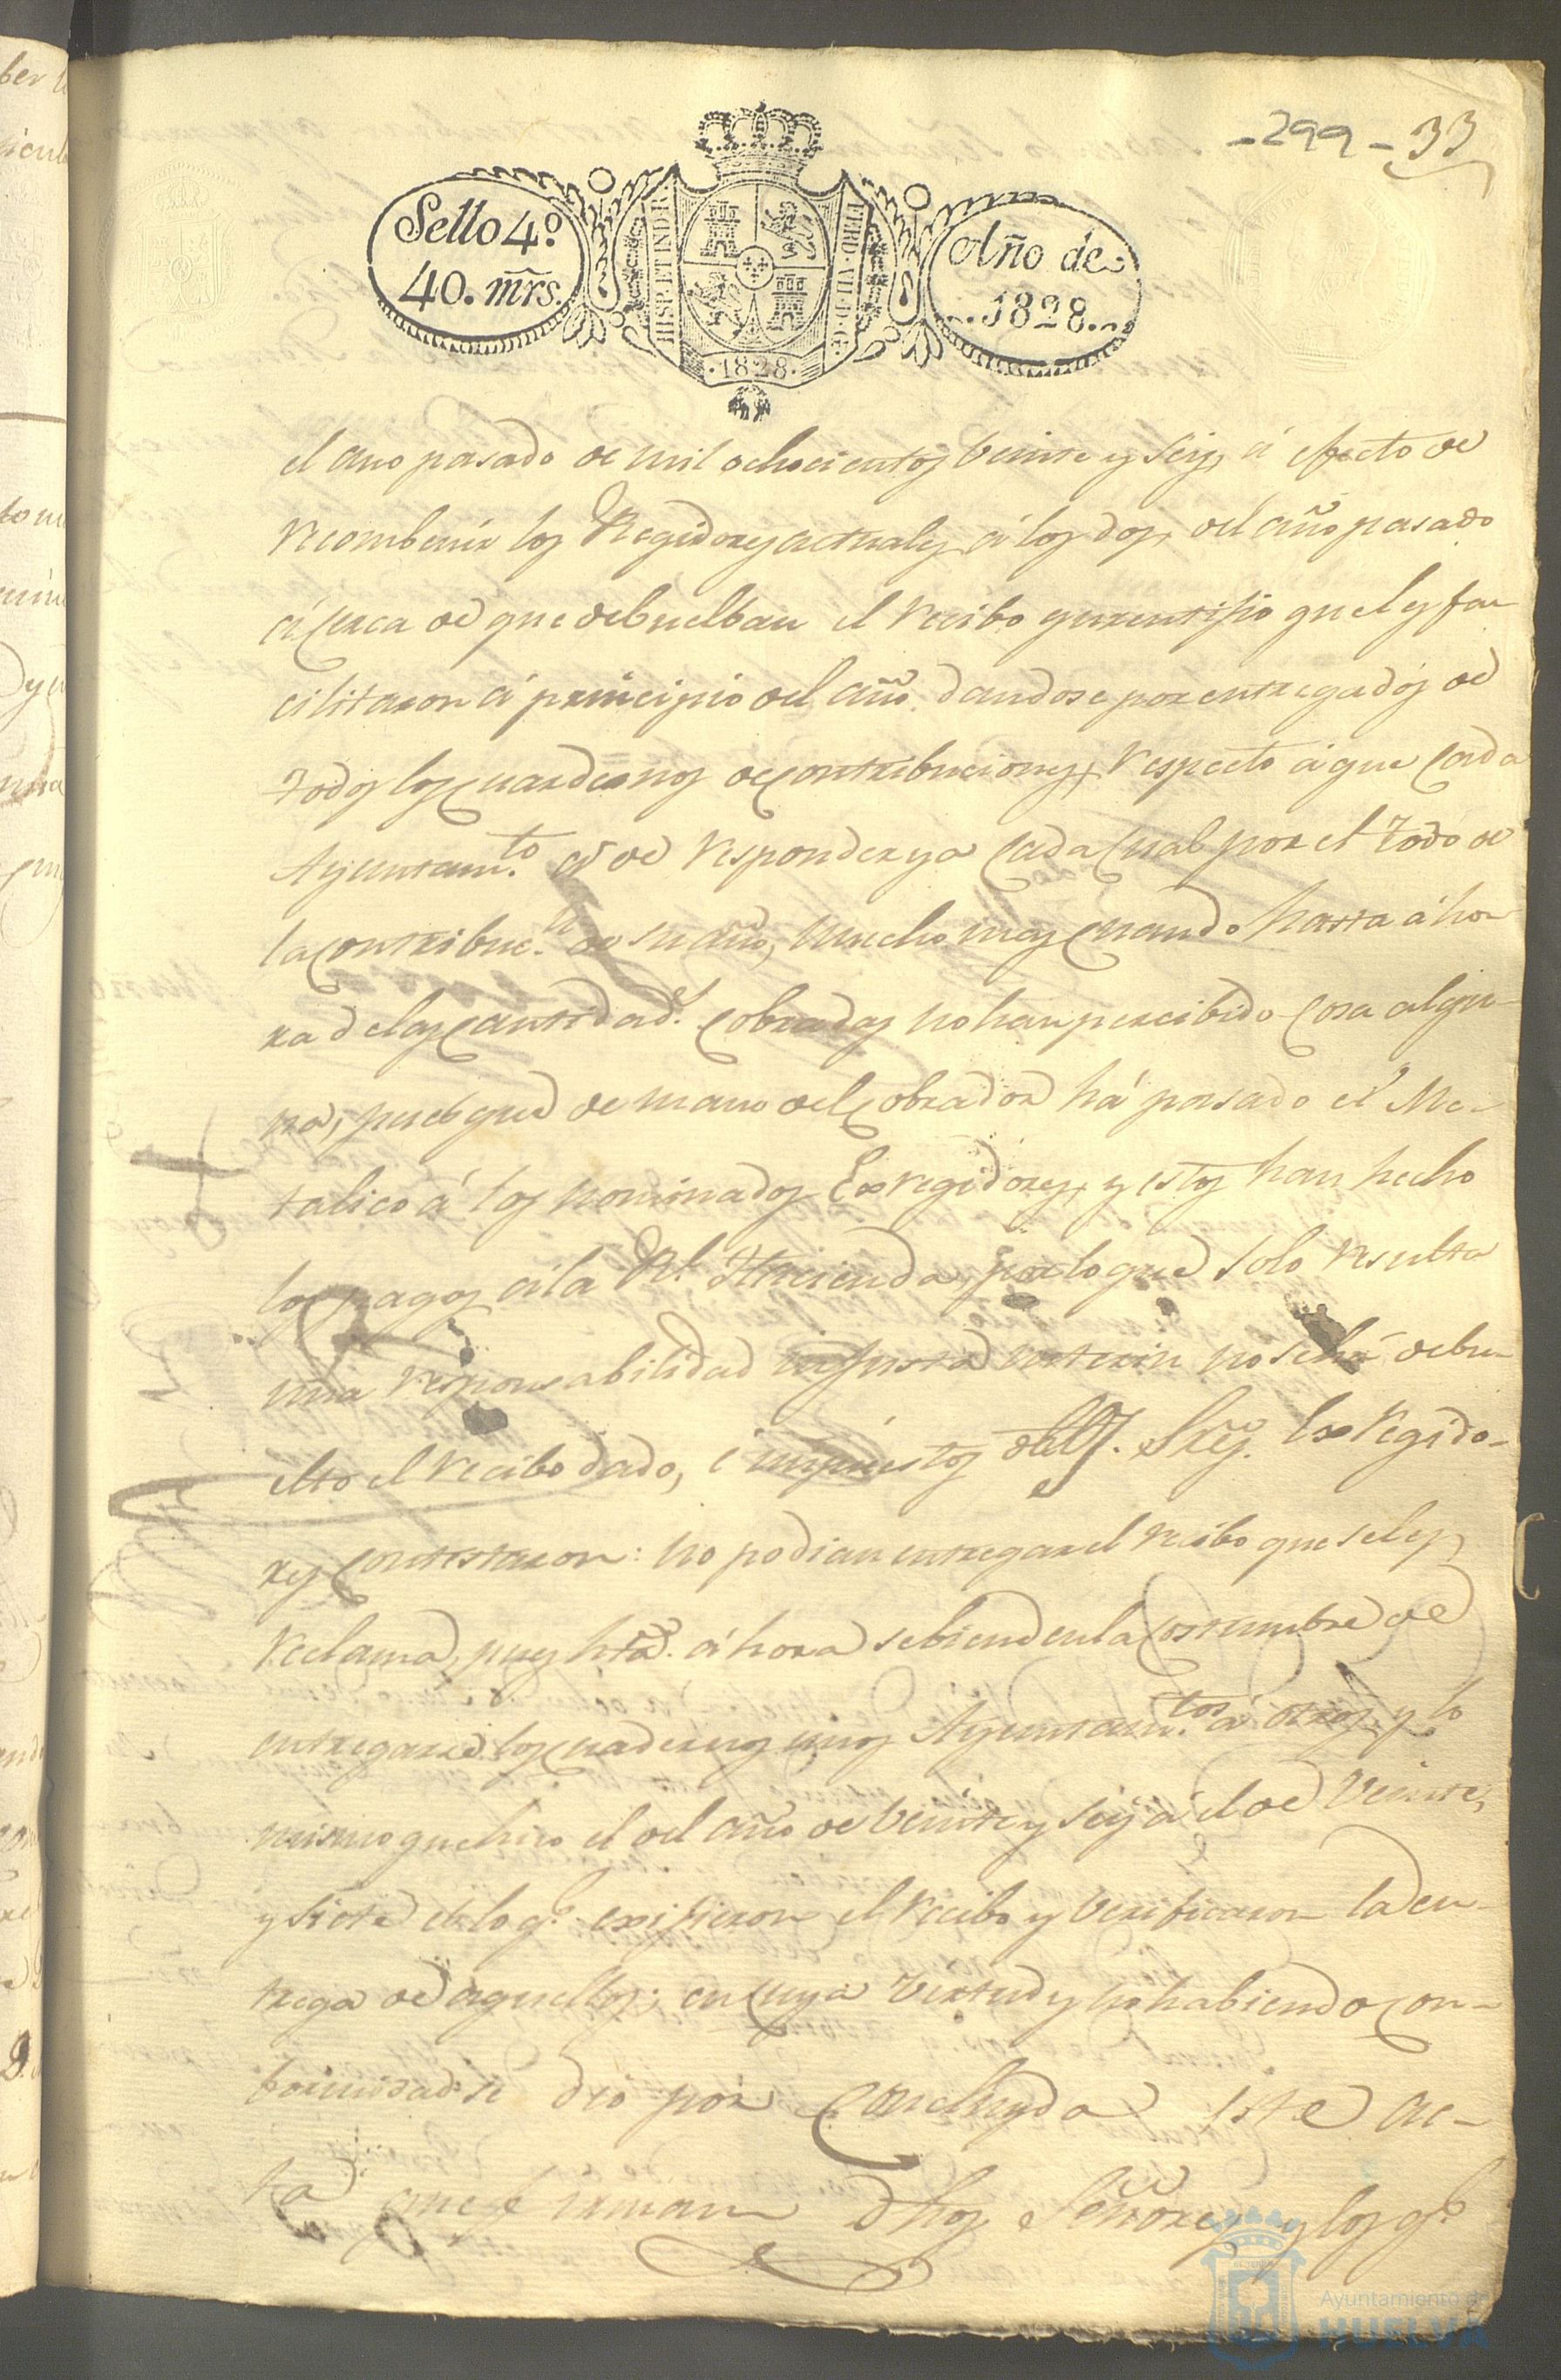 -299-33
Sello 4º
40. mr̃s.
HISP. ET IND. R.
FERD. VII. D. G.
·1828·
Año de
1828.
el ano pasado de mil ochocientos veinte y seis, á efecto de
recombenir los Regidores actuales á los dos, del año pasado
á cerca de que debuelban el recibo que les fa-
cilitaron á principio del año, dandose por entregados de
todos los quardernos de contribuciones, respecto á que cada
Ayuntam.to á de responder ya cada qual por el todo de
la contribuc.n de su año, mucho mas quando hasta áho-
ra de las cantidad.s cobradas no han percibido cosa algu-
na, pues que de mano del cobrador há pasado el Me-
talico á los nominados Exregidores, y estos han hecho
los pagos á la Rl. Hacienda, por lo que solo resulta
una responsabilidad injusta no se há debu-
elto el recibo dado, é impuestos Sres. Exregido-
res contestaron: no podian entregar el recibo que se les
reclama, pues hta. áhora sebiendo en la costumbre de
entregarse los quadernos unos Ayuntam.tos á otros, y lo
mismo que hizo el del año de veinte y seis á el de veinte,
y siete de lo q.e exijieron el recibo y berificaron la en-
trega de aquellos; en cuya virtud y no habiendo con-
formidad se dió por concluyda este ac-
ta que firman dhos Señores y los q.e
Ayuntamiento de
HUELVA